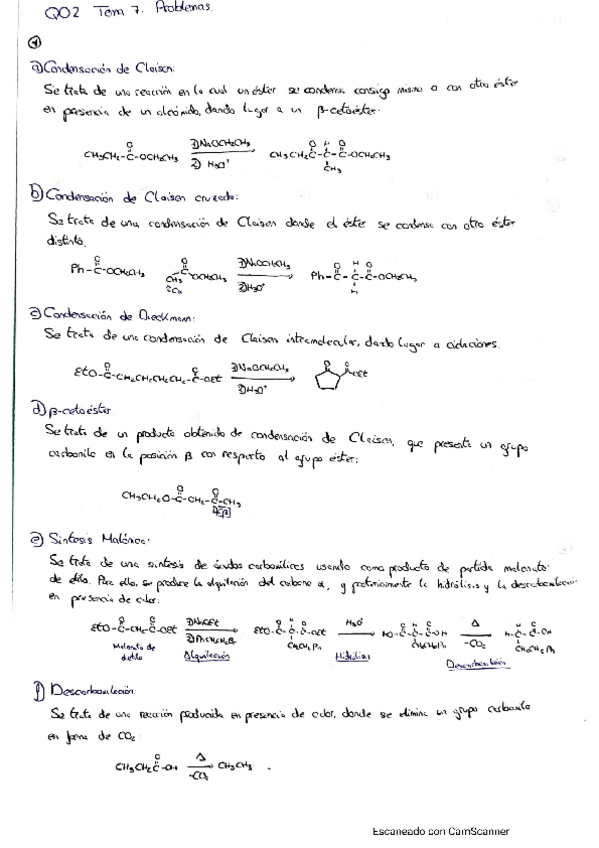 QO2 Tema 7. Problemas.
1
a) Condensación de Claisen:
Se trata de una reacción en la cual un éster se condensa consigo mismo o con otro éster
en presencia de un alcóxido, dando lugar a un β-cetoéster.
CH₃CH₂-C-OCH₂CH₃ 1) NaOCH₂CH₃ 2) H₃O⁺ CH₃CH₂C-C-C-OCH₂CH₃
O O H O CH₃
b) Condensación de Claisen cruzada:
Se trata de una condensación de Claisen donde el éster se condensa con otro éster
distinto.
Ph-C-OCH₂CH₃ CH₃ C OCH₂CH₃ 1) NaOCH₂CH₃ 2) H₃O⁺ Ph-C-C-C-OCH₂CH₃
c) Condensación de Dieckmann:
Se trata de una condensación de Claisen intramolecular, dando lugar a ciclaciones.
EtO-C-CH₂CH₂CH₂CH₂-C-OEt 1) NaOCH₂CH₃ 2) H₃O⁺ OEt
d) β-cetoéster
Se trata de un producto obtenido de condensación de Claisen, que presenta un grupo
carbonilo en la posición β con respecto al grupo éster:
CH₃CH₂O-C-CH₂-C-CH₃
e) Síntesis Malónica:
Se trata de una síntesis de ácidos carboxílicos usando como producto de partida malonato
de etilo. Para ello, se produce la alquilación del carbono α, y posteriormente la hidrólisis y la descarboxilación
en presencia de calor:
EtO-C-CH₂-C-OEt 1) NaOEt EtO-C-C-C-OEt H₃O⁺ HO-C-C-C-OH Δ -CO₂ H-C-C-OH
CH₂Ph CH₂Ph
Malonato de etilo Alquilación Hidrólisis Descarboxilación
f) Descarboxilación:
Se trata de una reacción producida en presencia de calor, donde se elimina un grupo carboxilo
en forma de CO₂:
CH₃CH₂C-OH Δ -CO₂ CH₃CH₃.
Escaneado con CamScanner